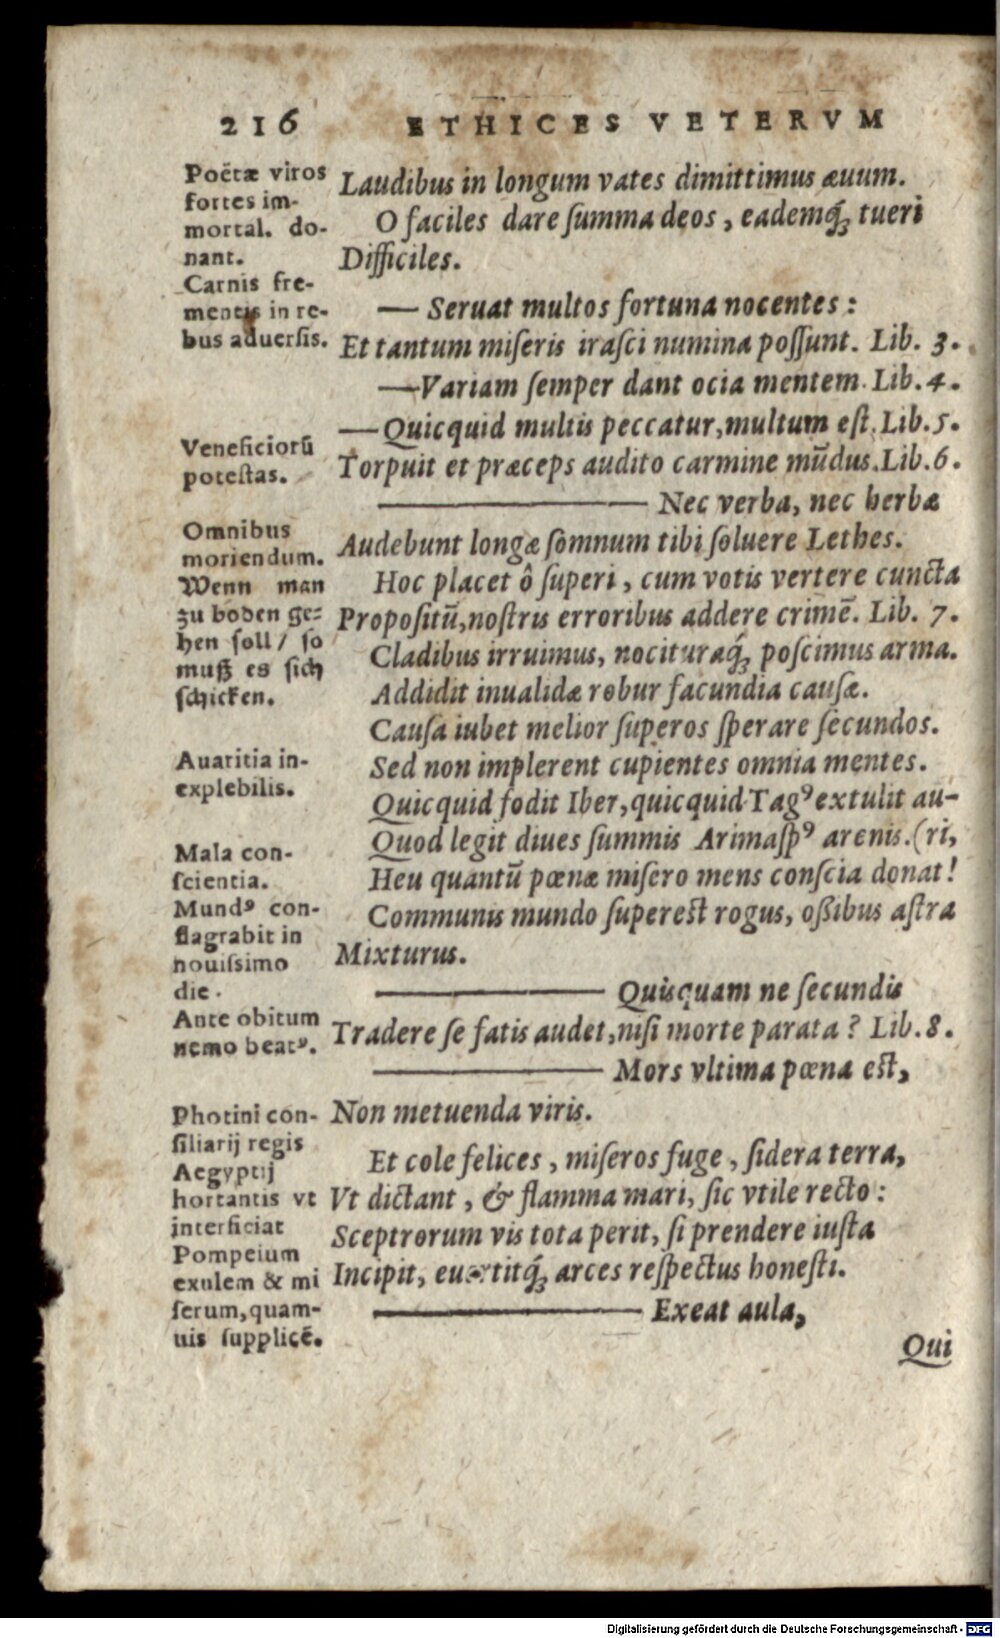 216 ETHICES VETERVM
Poëtæ viros
fortes im-
mortal. do-
nant.
Carnis fre-
mentis in re-
bus aduersis.
Veneficiorū
potestas.
Omnibus
moriendum.
Wenn man
zu boden ge-
hen soll / so
muß es sich
schicken.
Auaritia in-
explebilis.
Mala con-
scientia.
Mundꝰ con-
flagrabit in
nouissimo
die.
Ante obitum
nemo beatꝰ.
Photini con-
siliarij regis
Aegyptij
hortantis vt
interficiat
Pompeium
exulem & mi
serum, quam-
uis supplicē.
Laudibus in longum vates dimittimus æuum.
O faciles dare summa deos, eademq́; tueri
Difficiles.
— Seruat multos fortuna nocentes:
Et tantum miseris irasci numina possunt. Lib. 3.
— Variam semper dant ocia mentem. Lib. 4.
— Quicquid multis peccatur, multum est. Lib. 5.
Torpuit et præceps audito carmine mūdus. Lib. 6.
— Nec verba, nec herbæ
Audebunt longæ somnum tibi soluere Lethes.
Hoc placet ô superi, cum votis vertere cuncta
Propositū, nostris erroribus addere crimē. Lib. 7.
Cladibus irruimus, nocituraq́; poscimus arma.
Addidit inualidæ robur facundia causæ.
Causa iubet melior superos sperare secundos.
Sed non implerent cupientes omnia mentes.
Quicquid fodit Iber, quicquid Tagꝰ extulit au-
Quod legit diues summis Arimaspꝰ arenis. (ri,
Heu quantū pœnæ misero mens conscia donat!
Communis mundo superest rogus, oßibus astra
Mixturus.
— Quisquam ne secundis
Tradere se fatis audet, nisi morte parata? Lib. 8.
— Mors vltima pœna est,
Non metuenda viris.
Et cole felices, miseros fuge, sidera terra,
Vt distant, & flamma mari, sic vtile recto:
Sceptrorum vis tota perit, si prendere iusta
Incipit, euertitq́; arces respectus honesti.
— Exeat aula,
Qui
Digitalisierung gefördert durch die Deutsche Forschungsgemeinschaft - DFG